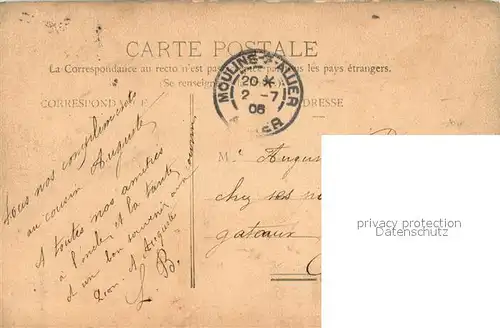 CARTE POSTALE
La Correspondance au recto n'est pas par tous les pays étrangers.
Se renseigner
CORRESPONDANCE
ADRESSE
MOULINS-S-ALLIER
20 *
2 -7
06
ALLIER
Tous nos compliments
au cousin Auguste
A toutes nos amitiés
à l'oncle et la tante
et un bon souvenir aux
Auguste
L. B.
M. Augus
chez ses
gateaux
privacy protection
Datenschutz